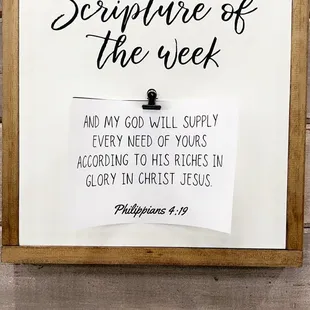 Scripture of
the week
AND MY GOD WILL SUPPLY
EVERY NEED OF YOURS
ACCORDING TO HIS RICHES IN
GLORY IN CHRIST JESUS.
Philippians 4:19